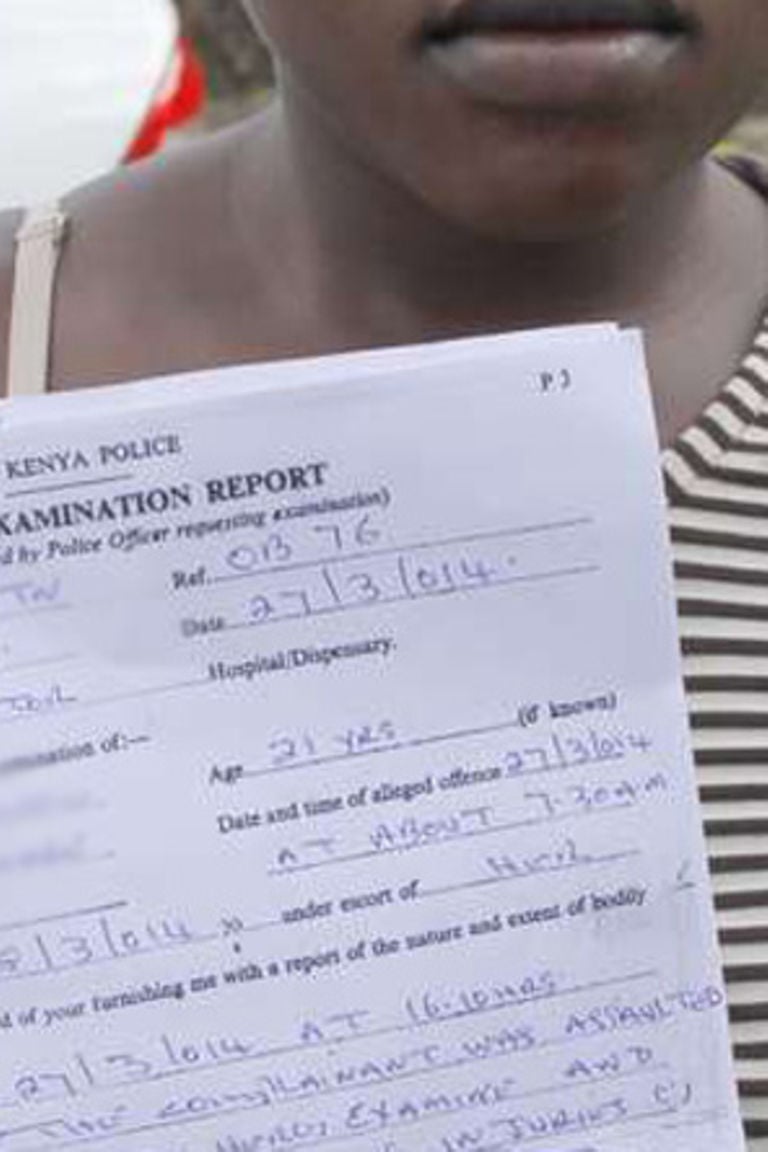 P3
KENYA POLICE
EXAMINATION REPORT
by Police Officer requesting examination)
Ref. OB 76
Date 27/3/014.
Hospital/Dispensary.
of:—
Age 21 YRS (if known)
Date and time of alleged offence 27/3/014
AT ABOUT 7.30AM
/3/014 under escort of
of your furnishing me with a report of the nature and extent of bodily
27/3/014 AT 16.10HRS
THE COMPLAINANT WAS ASSAULTED
EXAMINE AND
INJURIES